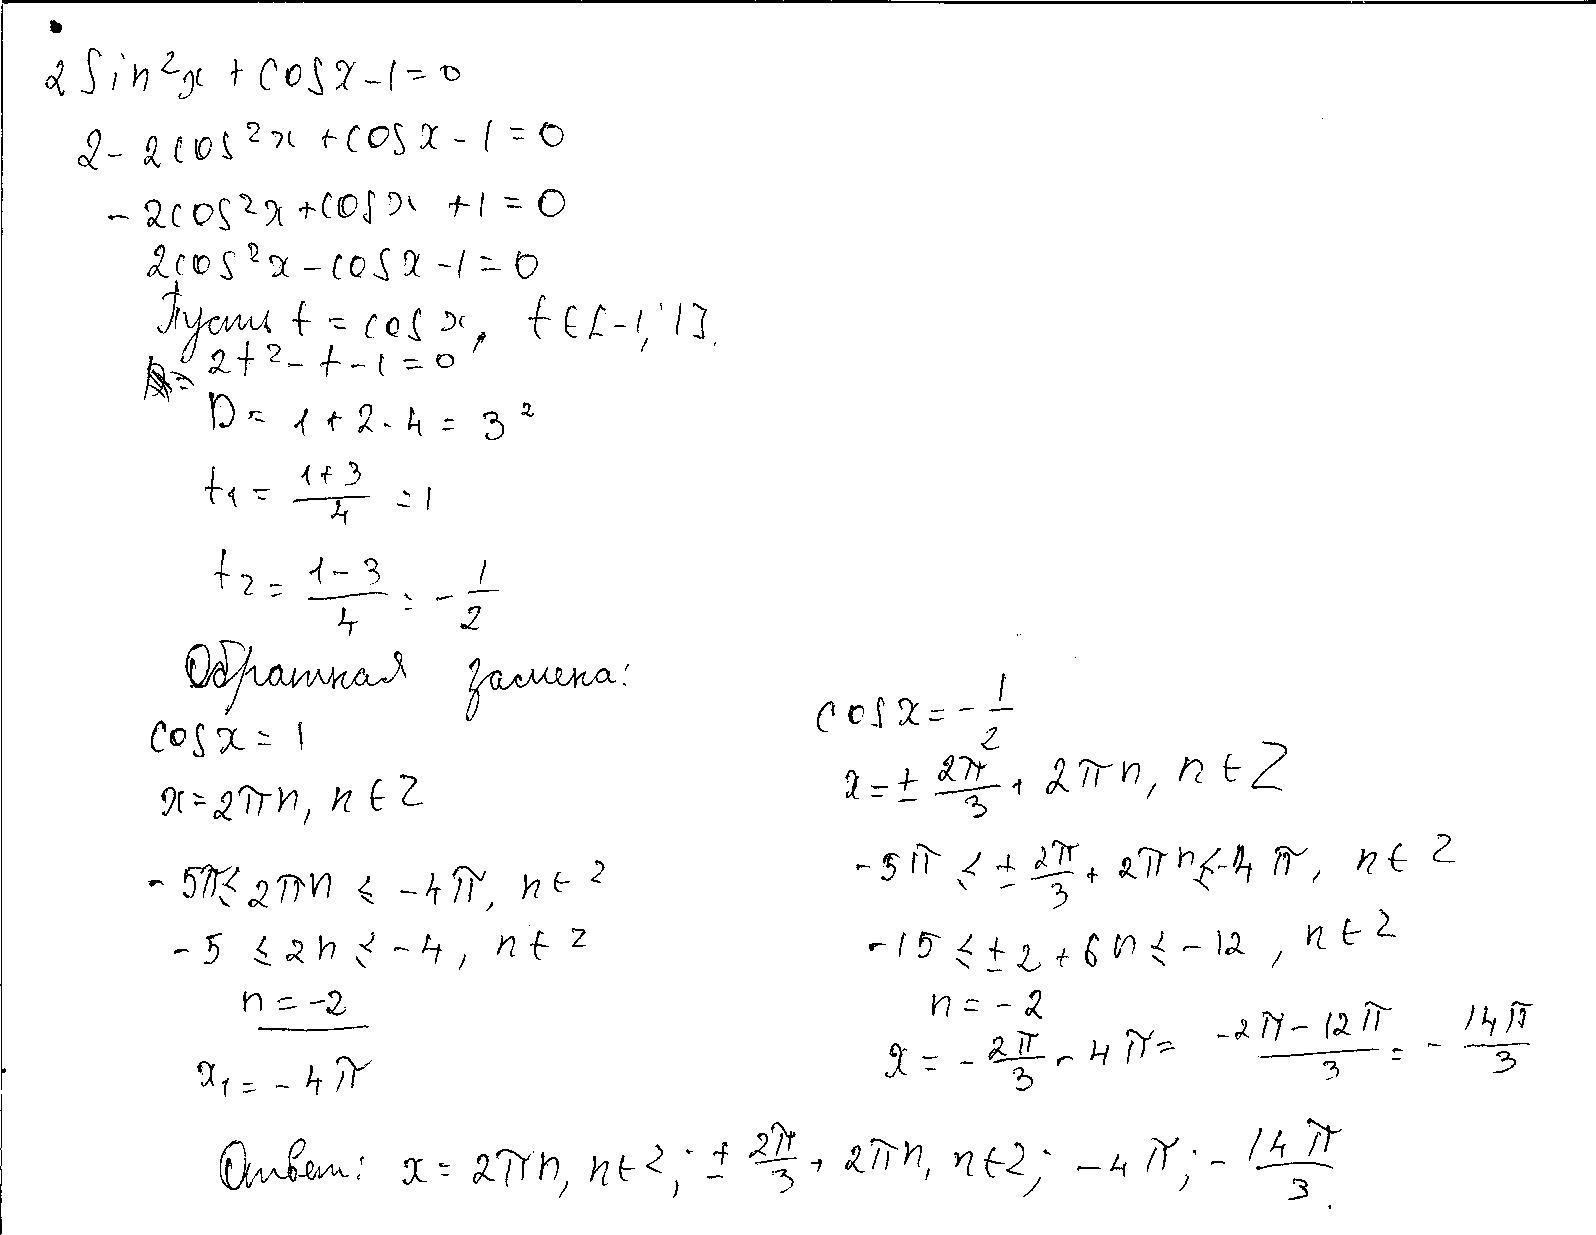 2 sin²x + cos x - 1 = 0
2 - 2cos²x + cos x - 1 = 0
- 2cos²x + cos x + 1 = 0
2cos²x - cos x - 1 = 0
Пусть t = cos x, t ∈ [-1; 1].
2t² - t - 1 = 0
D = 1 + 2·4 = 3²
t₁ = (1+3)/4 = 1
t₂ = (1-3)/4 = -1/2
Обратная замена:
cos x = 1
x = 2πn, n ∈ Z
-5π ≤ 2πn ≤ -4π, n ∈ Z
-5 ≤ 2n ≤ -4, n ∈ Z
n = -2
x₁ = -4π
cos x = -1/2
x = ± 2π/3 + 2πn, n ∈ Z
-5π ≤ ± 2π/3 + 2πn ≤ -4π, n ∈ Z
-15 ≤ ± 2 + 6n ≤ -12, n ∈ Z
n = -2
x = - 2π/3 - 4π = (-2π - 12π)/3 = - 14π/3
Ответ: x = 2πn, n ∈ Z; ± 2π/3 + 2πn, n ∈ Z; -4π; - 14π/3.